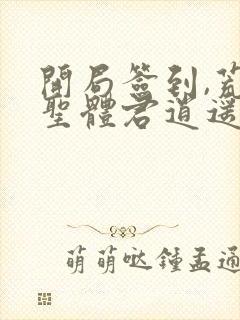 開局簽到,荒
聖體君逍遥
萌萌哒鍾孟通